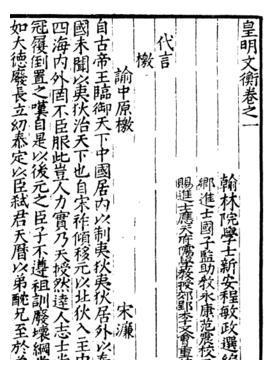 皇明文衡卷之一
翰林院學士新安程敏政選編
鄉進士國子監助教永康范震校
賜進士應天府儒學教授郯郡李文會重
代言
檄
諭中原檄　宋濂
自古帝王臨御天下中國居内以制夷狄夷狄居外以奉
國未聞以夷狄治天下也自宋祚傾移元以北狄入主中
四海内外罔不臣服此豈人力實乃天授然達人志士尚
冠履倒置之嘆自是以後元之臣子不遵祖訓廢壞綱
如大德廢長立幼泰定以臣弑君天曆以弟酖兄至於